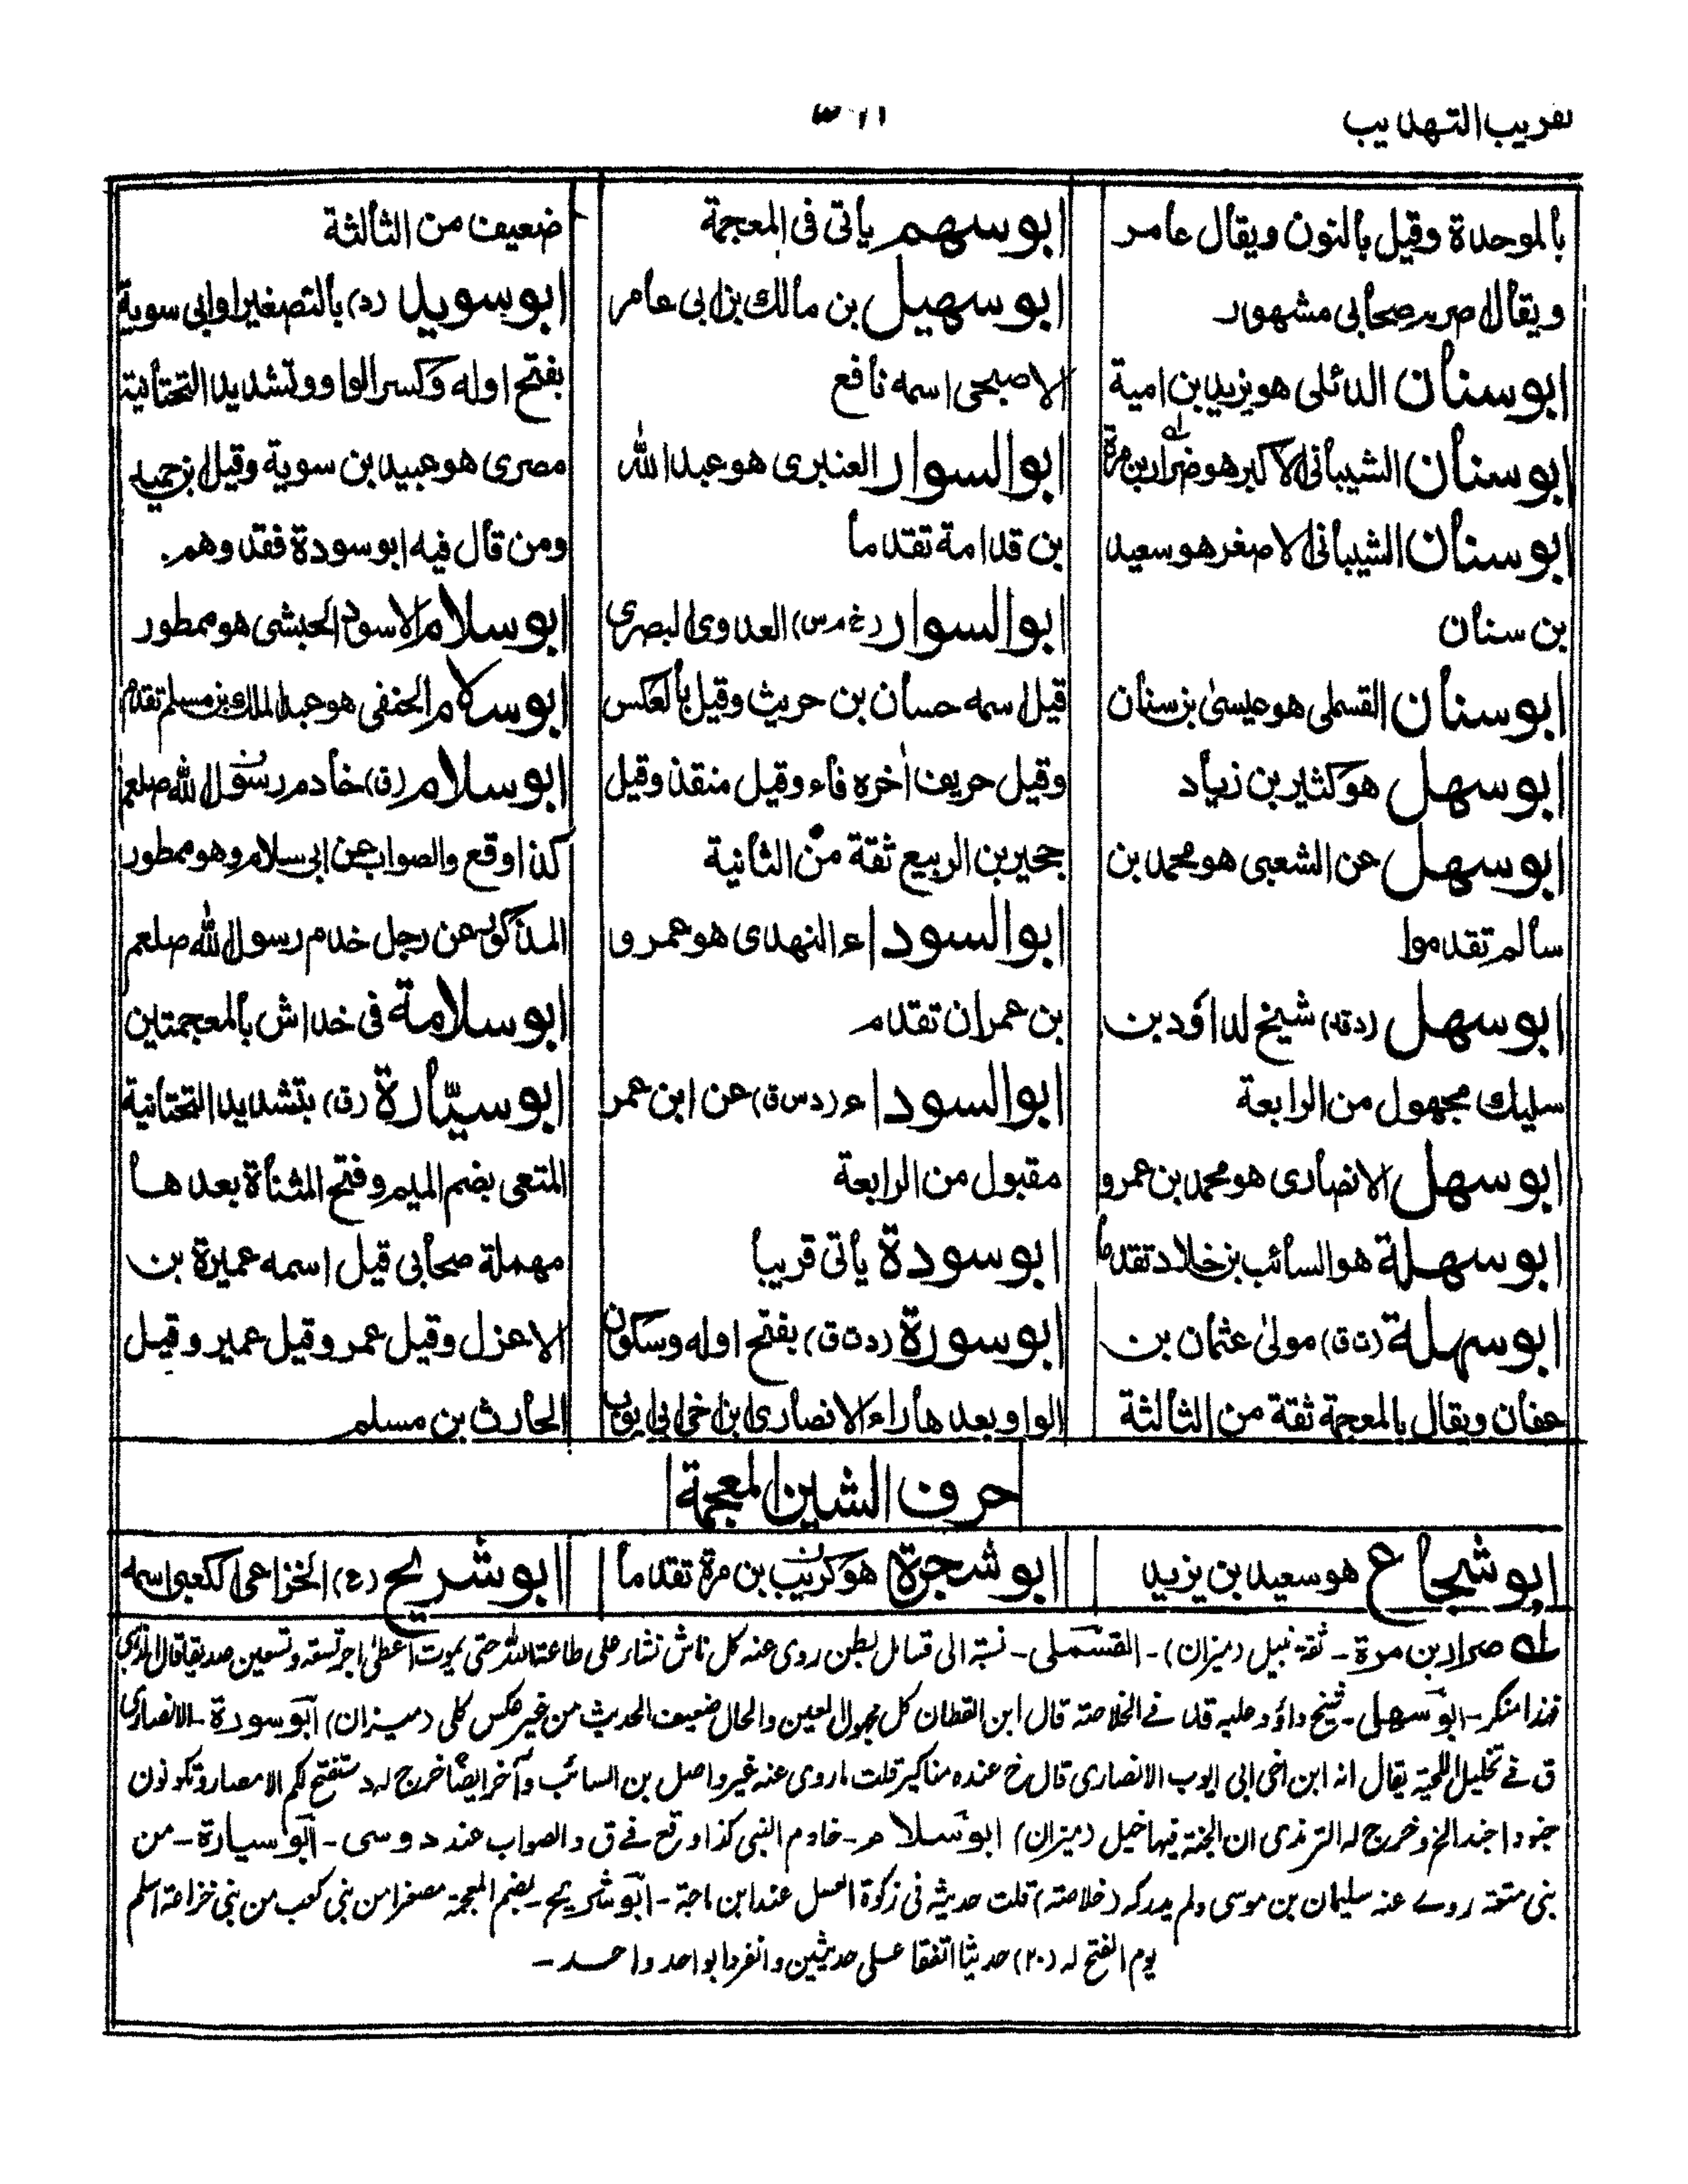 تقريب التهذيب
بالموحدة وقيل بالنون ويقال عامر
ويقال صحابى مشهور
ابوسنان الدئلى هو يزيد بن امية
ابوسنان الشيبانى الاكبر هو ضرار بن مرة
ابوسنان الشيبانى الاصغر هو سعيد
بن سنان
ابوسنان القسملى هو عيسىٰ بن سنان
ابوسهل هو كثير بن زياد
ابوسهل عن الشعبى هو محمد بن
سالم تقدموا
ابوسهل شيخ لداؤد بن
سليك مجهول من الرابعة
ابوسهل الانصارى هو محمد بن عمرو
ابوسهلة هو السائب بن خلاد تقدما
ابوسهلة (ت ق) مولىٰ عثمان بن
عفان ويقال بالمعجمة ثقة من الثالثة
ابوسهم ياتى فى المعجمة
ابوسهيل بن مالك بن ابى عامر
الاصبحى اسمه نافع
ابوالسوار العنبرى هو عبد الله
بن قدامة تقدما
ابوالسوار (خ م س) العدوى البصرى
قيل اسمه حسان بن حريث وقيل بالعكس
وقيل حريف اٰخره فاء وقيل منقذ وقيل
حجير بن الربيع ثقة من الثانية
ابوالسوداء النهدى هو عمرو
بن عمران تقدم
ابوالسوداء (د س ق) عن ابن عمر
مقبول من الرابعة
ابوسودة ياتى قريبا
ابوسورة (د ت ق) بفتح اوله وسكون
الواو بعدها راء الانصارى ابن اخى ابى ايوب
ضعيف من الثالثة
ابوسويد (د) بالتصغير او ابى سوية
بفتح اوله وكسر الواو وتشديد التحتانية
مصرى هو عبيد بن سوية وقيل بن حميد
ومن قال فيه ابوسودة فقد وهم.
ابوسلام الاسود الحبشى هو ممطور
ابوسلام الحنفى هو عبد الملك بن مسلم تقدم
ابوسلام (ق) خادم رسول الله صلعم
كذا وقع والصواب عن ابى سلام وهو ممطور
المذكور عن رجل خدم رسول الله صلعم
ابوسلامة فى خداش بالمعجمتين
ابوسيّارة (ق) بتشديد التحتانية
المتعى بضم الميم وفتح المثناة بعدها
مهملة صحابى قيل اسمه عميرة بن
الاعزل وقيل عمر وقيل عمير وقيل
الحارث بن مسلم
حرف الشين المعجمة
ابوشجاع هو سعيد بن يزيد
ابوشجرة هو كثير بن مرة تقدما
ابوشريح (ع) الخزاعى الكعبى اسمه
له ضرار بن مرة - ثقة نبيل (ميزان) - القسملى - نسبة الى قسامل بطن روى عنه كل ناش نشاء على طاعة الله حتى يموت اعطى اجر تسعة وتسعين صديقا قال الذهبى
هذا منكر - ابوسهل - شيخ داؤد فى الخلاصة قال ابن القطان كل مجهول العين والحال ضعيف الحديث من غير عكس كلى (ميزان) ابوسورة - الانصارى
ق فے تخليل اللحية يقال انه ابن اخى ابى ايوب الانصارى قال خ عنده مناكير قلت ما روى عنه غير واصل بن السائب وآخر ايضا خرج له د ستفتح لكم الامصار وتكونون
جنودا الخ وخرج له الترمذى ان الجنة فيها خيل (ميزان) ابوسلام - خادم النبى كذا وقع فے ق والصواب عند د وسى - ابوسيارة - من
بنى متعة روے عنه سليمان بن موسى ولم يدركه (خلاصة) قلت حديثه فى زكوة العسل عند ابن ماجة - ابوشريح - بضم المعجمة مصغرا من بنى كعب من بنى خزاعة اسلم
يوم الفتح له (٢٠) حديثا اتفقا على حديثين وانفردا بواحد واحد -